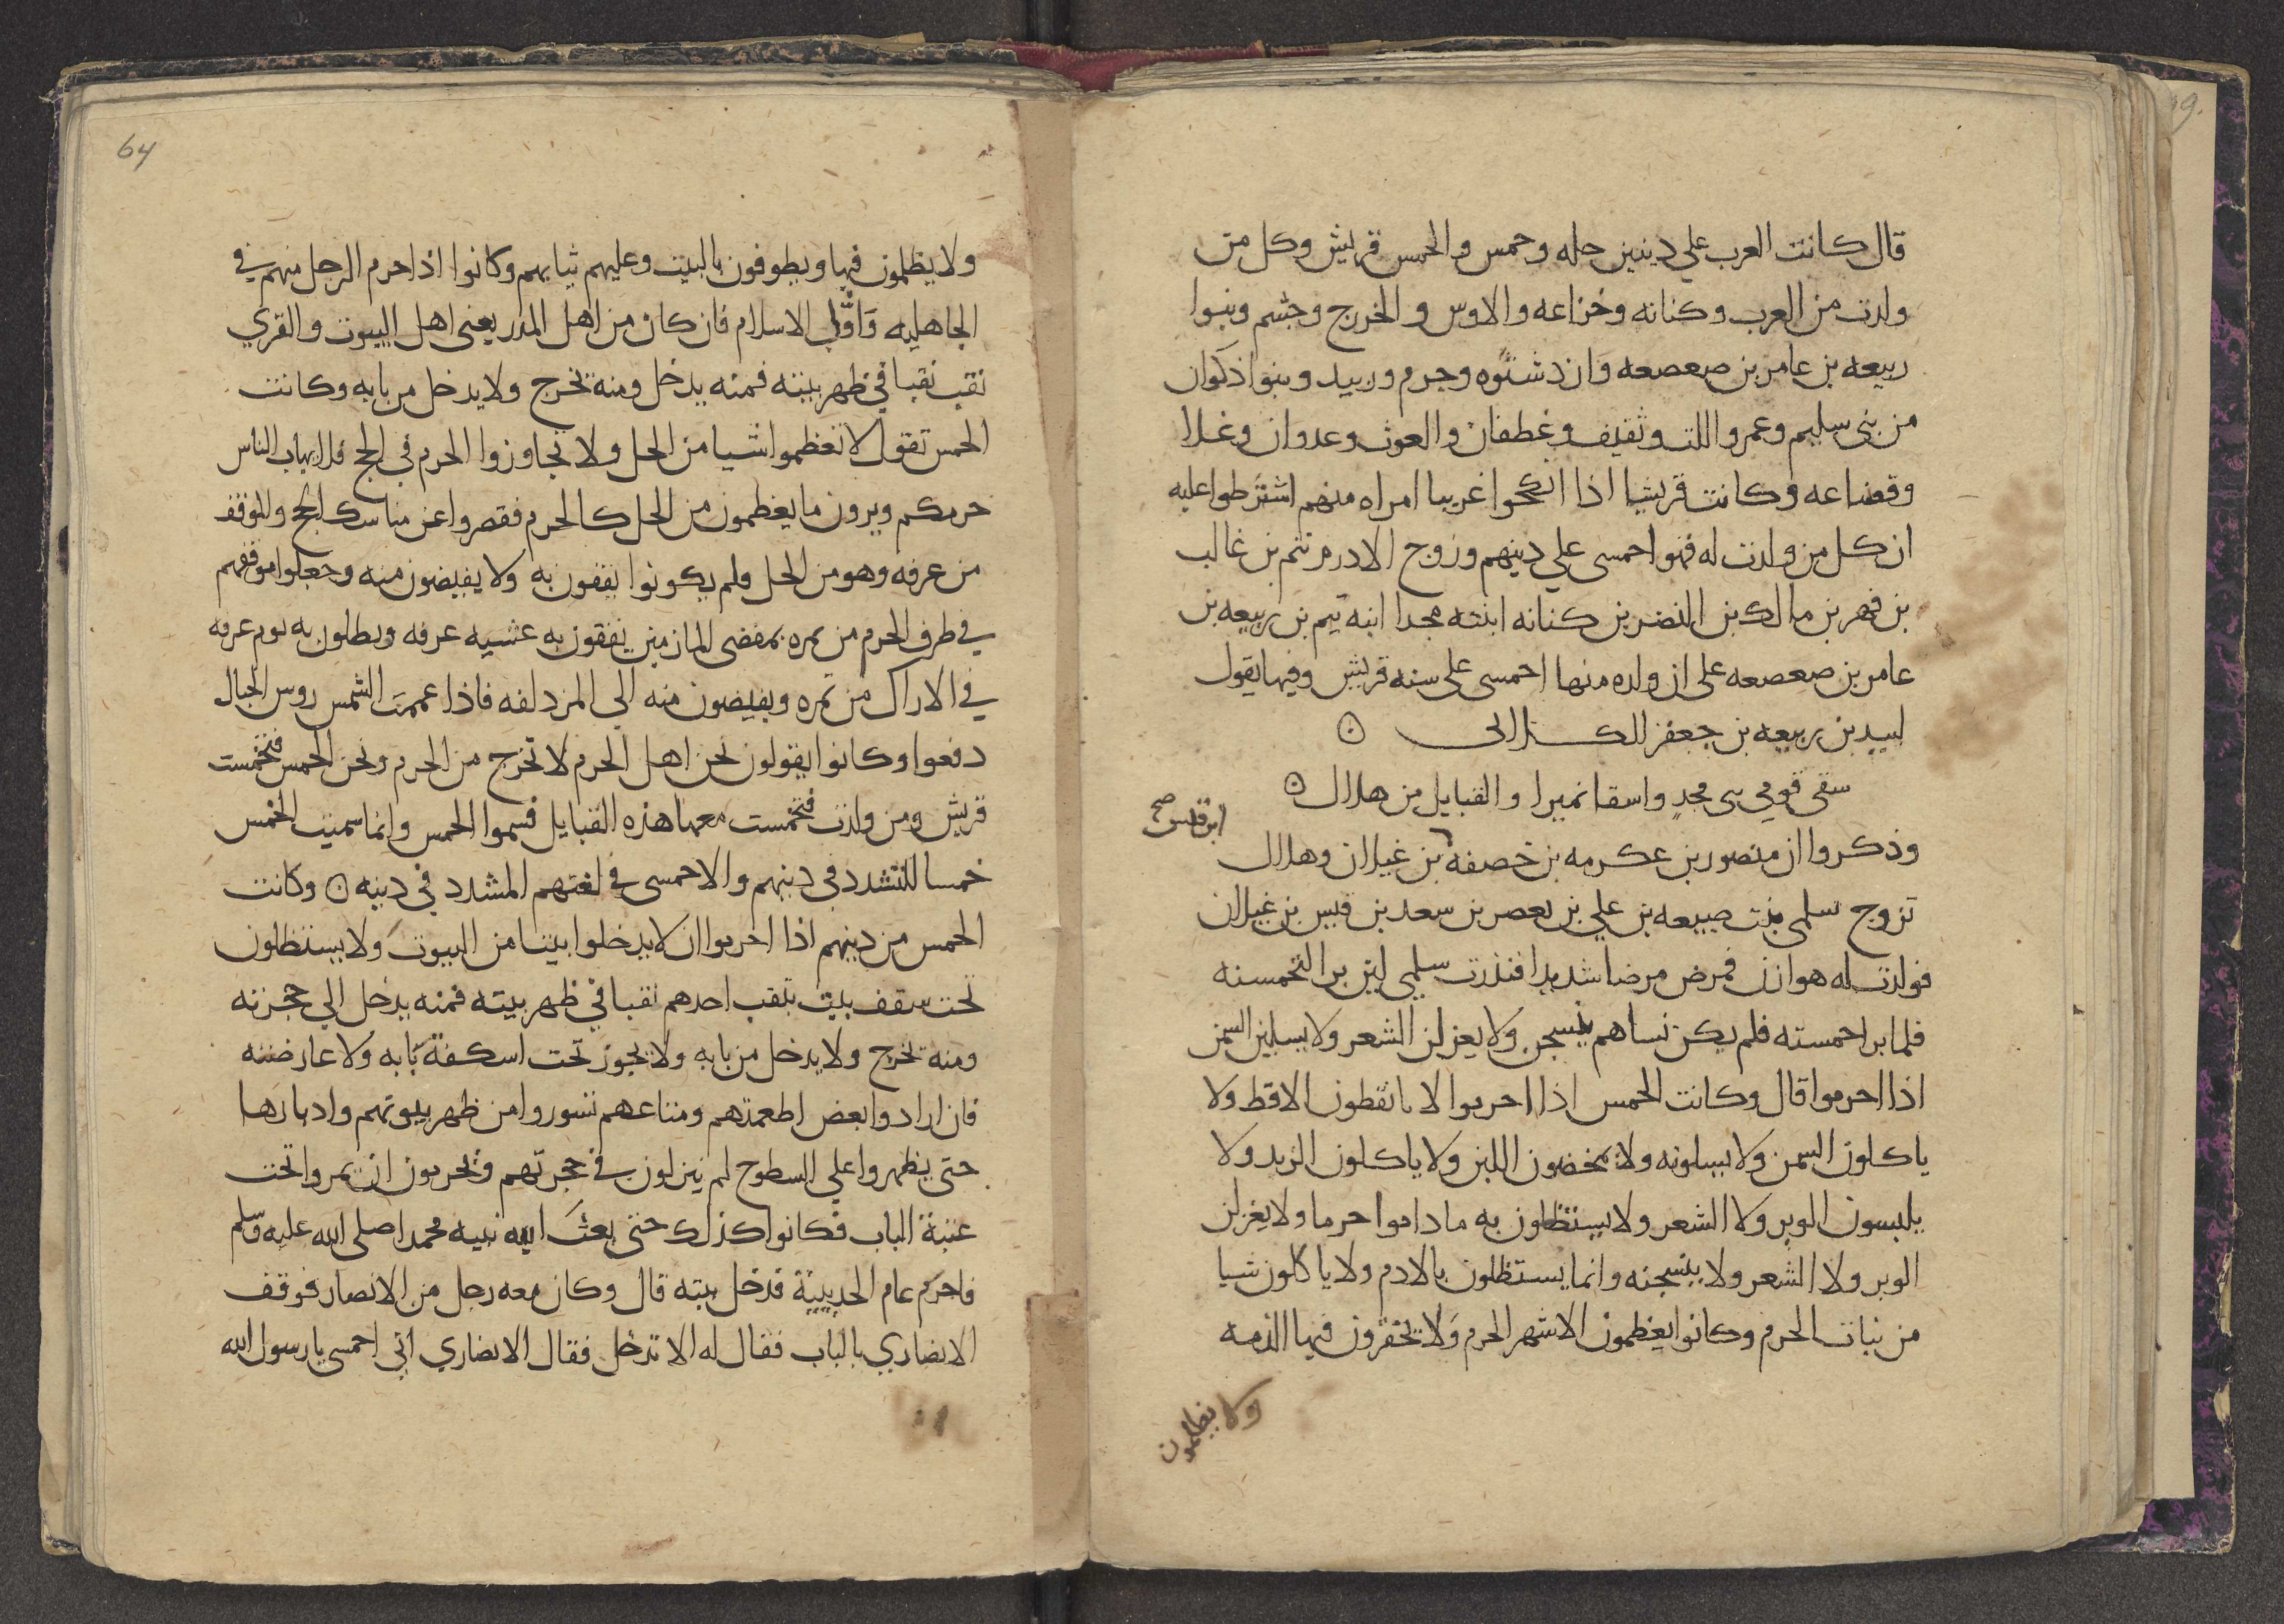 قال كانت العرب علي دينين حله وحمس والحمس قريش وكل من
ولدت من العرب وكنانه وخزاعه والاوس والخزرج وجشم وبنوا
ربيعه بن عامر بن صعصعه وازد شنوه وجرم وزبيد وبنوا ذكوان
من بني سليم وعمرو اللت وثقيف وغطفان والغوث وعدوان وعلا
وقضاعه وكانت قريشا اذا انكحوا غريبا امراه منهم اشترطوا عليه
ان كل من ولدت له فهوا احمسي علي دينهم وزوج الادرم تيم بن غالب
بن فهر بن مالك بن النضر بن كنانه ابنته مجدا ابنه تيم بن ربيعه بن
عامر بن صعصعه علي ان ولده منها احمسي علي سنه قريش وفيها يقول
لبيد بن ربيعه بن جعفر الكلابي
سقي قومي بني مجد واسقا نميرا والقبايل من هلال
وذكروا ان منصور بن عكرمه بن خصفه بن غيلان وهلال
ابن قيس صح
تزوج سلمي بنت ضبيعه بن علي بن يعصر بن سعد بن قيس بن غيلان
فولدت له هوازن فمرض مرضا شديدا فنذرت سلمي لين برا لتحمسنه
فلما برا حمسته فلم يكن نساهم ينسجن ولا يغزلن الشعر ولا يسلين السمن
اذا احرموا قال وكانت الحمس اذا احرموا لا ياتقطون الاقط ولا
ياكلون السمن ولا يسلونه ولا يمخضون اللبن ولا ياكلون الزبد ولا
يلبسون الوبر ولا الشعر ولا يستظلون به ماداموا حرما ولا يغزلن
الوبر ولا الشعر ولا ينسجنه وانما يستظلون بالادم ولا ياكلون شيا
من نبات الحرم وكانوا يعظمون الاشهر الحرم ولا يخفرون فيها الذمه
ولا يظلمون
64
ولا يظلمون فيها ويطوفون بالبيت وعليهم ثيابهم وكانوا اذا احرم الرجل منهم في
الجاهليه واول الاسلام فان كان من اهل المدر يعني اهل البيوت والقري
نقب نقبا في ظهر بيته فمنه يدخل ومنه يخرج ولا يدخل من بابه وكانت
الحمس تقول لا تعظموا شيا من الحل ولا تجاوزوا الحرم في الحج فلا يهاب الناس
حرمكم ويرون ما يعظمون من الحل كالحرم فقصروا عن مناسك الحج والموقف
من عرفه وهو من الحل فلم يكونوا يقفون به ولا يفيضون منه وجعلوا موقفهم
في طرف الحرم من نمره بمفضي المازمين يقفون به عشيه عرفه ويظلون به يوم عرفه
في الاراك من نمره ويفيضون منه الي المزدلفه فاذا عممت الشمس روس الجبال
دفعوا وكانوا يقولون نحن اهل الحرم لا نخرج من الحرم ونحن الحمس فتحمست
قريش ومن ولدت فتحمست معها هذه القبايل فسموا الحمس وانما سميت الحمس
حمسا للتشدد في دينهم والاحمسي في لغتهم المشدد في دينه وكانت
الحمس من دينهم اذا احرموا ان لا يدخلوا بيتا من البيوت ولا يستظلون
تحت سقف بيت ينقب احدهم نقبا في ظهر بيته فمنه يدخل الي حجرته
ومنه يخرج ولا يدخل من بابه ولا يجوز تحت اسكفة بابه ولا عارضته
فان ارادوا بعض اطعمتهم ومتاعهم تسوروا من ظهر بيوتهم وادبارها
حتي يظهروا علي السطوح ثم ينزلون في حجرتهم ويحرمون ان يمروا تحت
عتبة الباب فكانوا كذلك حتي بعث الله نبيه محمدا صلي الله عليه وسلم
فاحرم عام الحديبية فدخل بيته قال وكان معه رجل من الانصار فوقف
الانصاري بالباب فقال له الا تدخل فقال الانصاري اني احمسي يا رسول الله